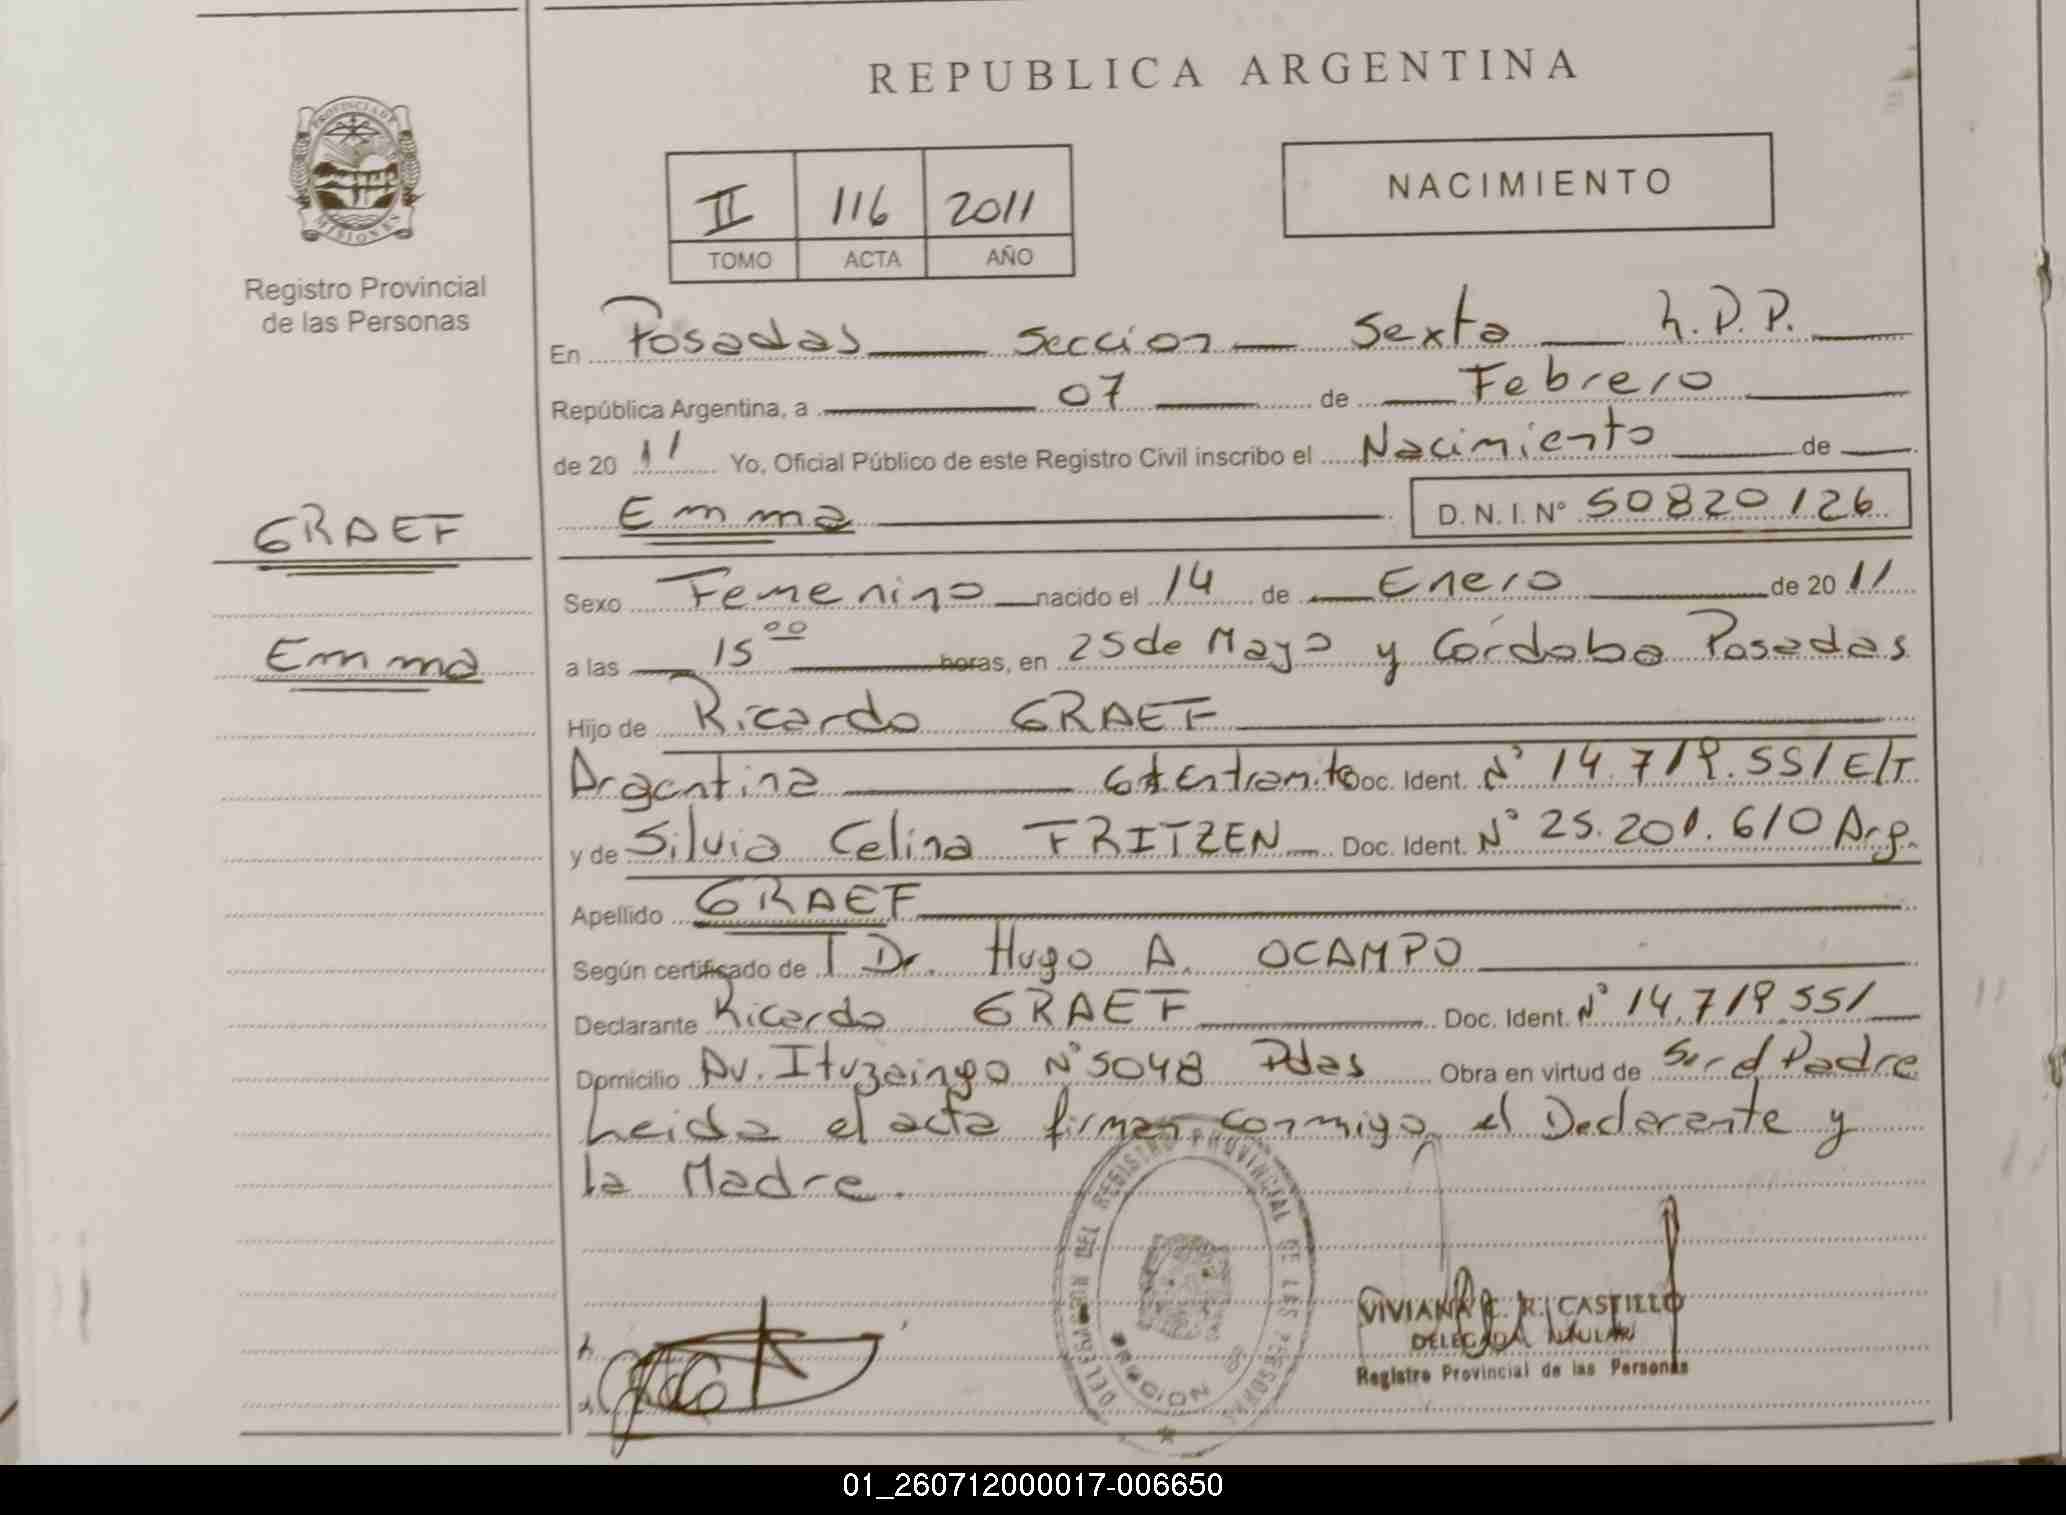 REPUBLICA ARGENTINA
PROVINCIA DE
MISIONES
Registro Provincial
de las Personas
II 116 2011
TOMO ACTA AÑO
NACIMIENTO
En Posadas Seccion Sexta
República Argentina, a 07 de Febrero
de 2011 Yo, Oficial Público de este Registro Civil inscribo el Nacimiento de
Emma D. N. I. Nº 50820126
GRAEF
Emma
Sexo Femenino nacido el 14 de Enero de 2011
a las 15 00 horas, en 25 de Mayo y Córdoba Posadas
Hijo de Ricardo GRAEF
Argentina Doc. Ident. Nº 14.719.551 E/T
y de Silvia Celina FRITZEN Doc. Ident. Nº 25.201.610 Arg.
Apellido GRAEF
Según certificado de Dr. Hugo A. OCAMPO
Declarante Ricardo GRAEF Doc. Ident. Nº 14.719.551
Domicilio Av. Ituzaingo Nº 5048 Pdas Obra en virtud de Ser el Padre
Leida el acta firman conmigo el Declarante y
la Madre.
DEL REGISTRO PROVINCIAL DE LAS PERSONAS
VIVIANA C. R. CASTILLO
DELEGADA TITULAR
Registro Provincial de las Personas
01_260712000017-006650